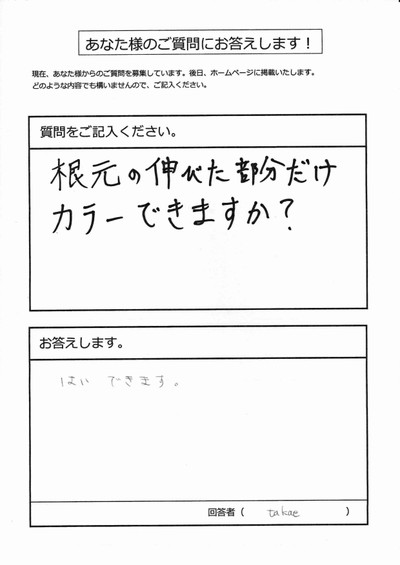 あなた様のご質問にお答えします！
現在、あなた様からのご質問を募集しています。後日、ホームページに掲載いたします。
どのような内容でも構いませんので、ご記入ください。
質問をご記入ください。
根元の伸びた部分だけ
カラーできますか？
お答えします。
はい できます。
回答者（ takae ）